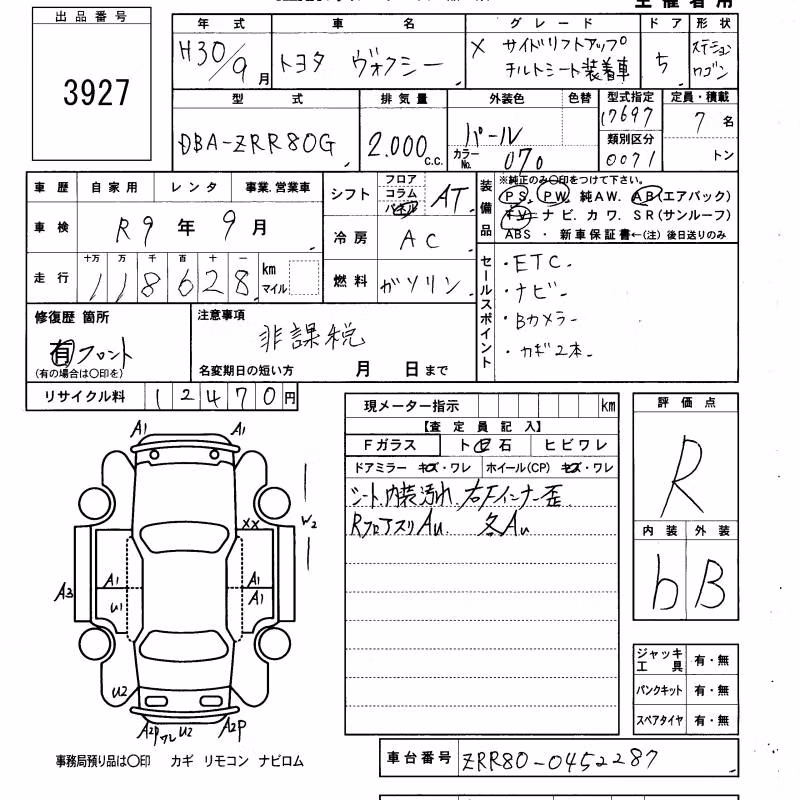 主催者用
出品番号
3927
年式 車名 グレード ドア 形状
H30/9月 トヨタ ヴォクシー X サイドリフトアップ チルトシート装着車 5 ステーションワゴン
型式 排気量 外装色 色替 型式指定 定員・積載
DBA-ZRR80G 2.000c.c. パール カラーNo. 070 17697 7名
類別区分 0071 トン
車歴 自家用 レンタ 事業.営業車
車検 R9年9月
走行 十万 万 千 百 十 一 118628 km マイル
シフト フロア コラム パネル AT
冷房 AC
燃料 ガソリン
装備品
※純正のみ〇印をつけて下さい。
PS. PW. 純AW. AB(エアバック)
TV ナビ. カワ. SR(サンルーフ)
ABS ・ 新車保証書←(注)後日送りのみ
セールスポイント
・ETC.
・ナビー
・Bカメラー
・カギ2本-
修復歴 箇所
有 フロント
(有の場合は〇印を)
注意事項
非課税
名変期日の短い方 月 日まで
リサイクル料 12470円
現メーター指示 km
【査定員記入】
Fガラス トビ石 ヒビワレ
ドアミラー キズ・ワレ ホイール(CP) キズ・ワレ
シート、内装汚れ. 右Fインナー歪
RフロアスリAu. 各Au
評価点
R
内装 外装
b B
A1 A1
XX
W2
A1 A1
A3 U1 A1
U2
A2P ワレ U2 A2P
ジャッキ工具 有・無
パンクキット 有・無
スペアタイヤ 有・無
事務局預り品は〇印 カギ リモコン ナビロム
車台番号 ZRR80-0452287